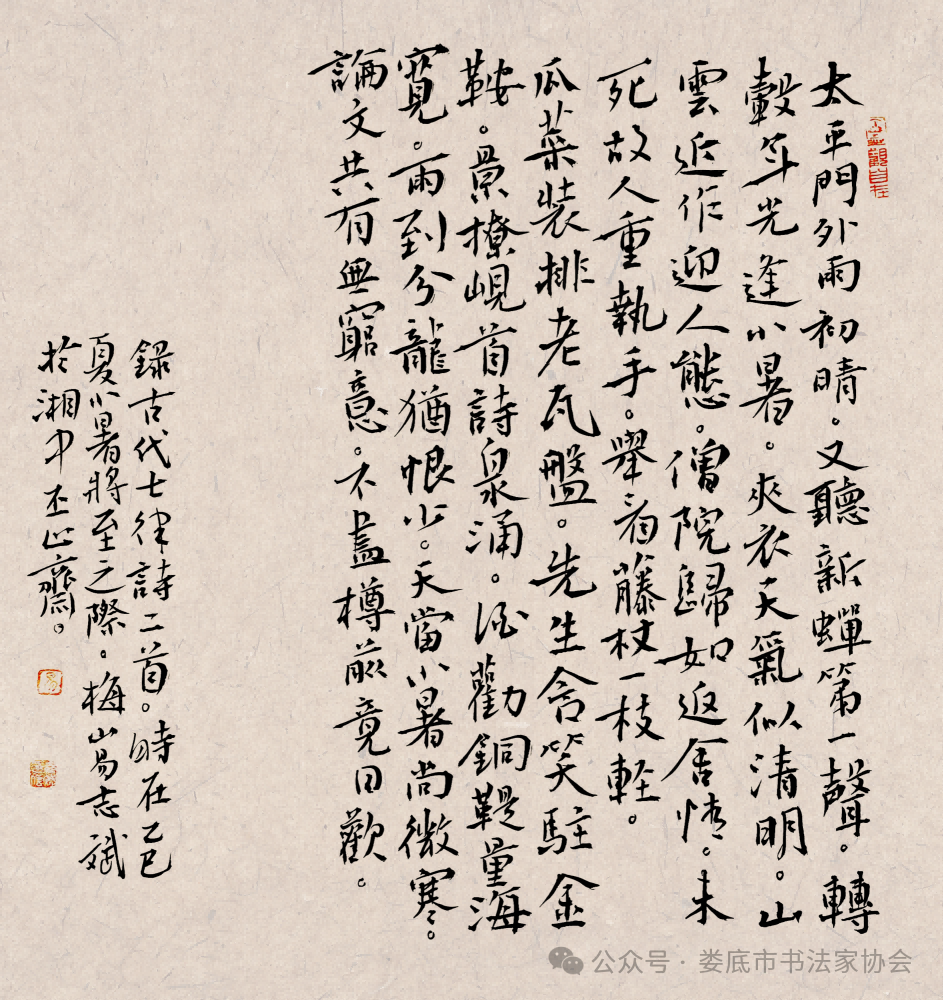 太平門外雨初晴。又聽新蟬第一聲。轉
轂年光逢小暑。夾衣天氣似清明。山
雲近作迎人態。僧院歸如返舍情。未
死故人重執手。舉看籐杖一枝輕。
瓜菜裝排老瓦盤。先生含笑駐金
鞍。景撩峴首詩泉涌。酒勸銅鞮量海
寬。雨到分龍猶恨少。天當小暑尚微寒。
論文共有無窮意。不盡樽前竟日歡。
録古代七律詩二首。時在乙巳
夏小暑將至之際。梅山易志斌
於湘中丕止齋。
觀自在
公众号·娄底市书法家协会